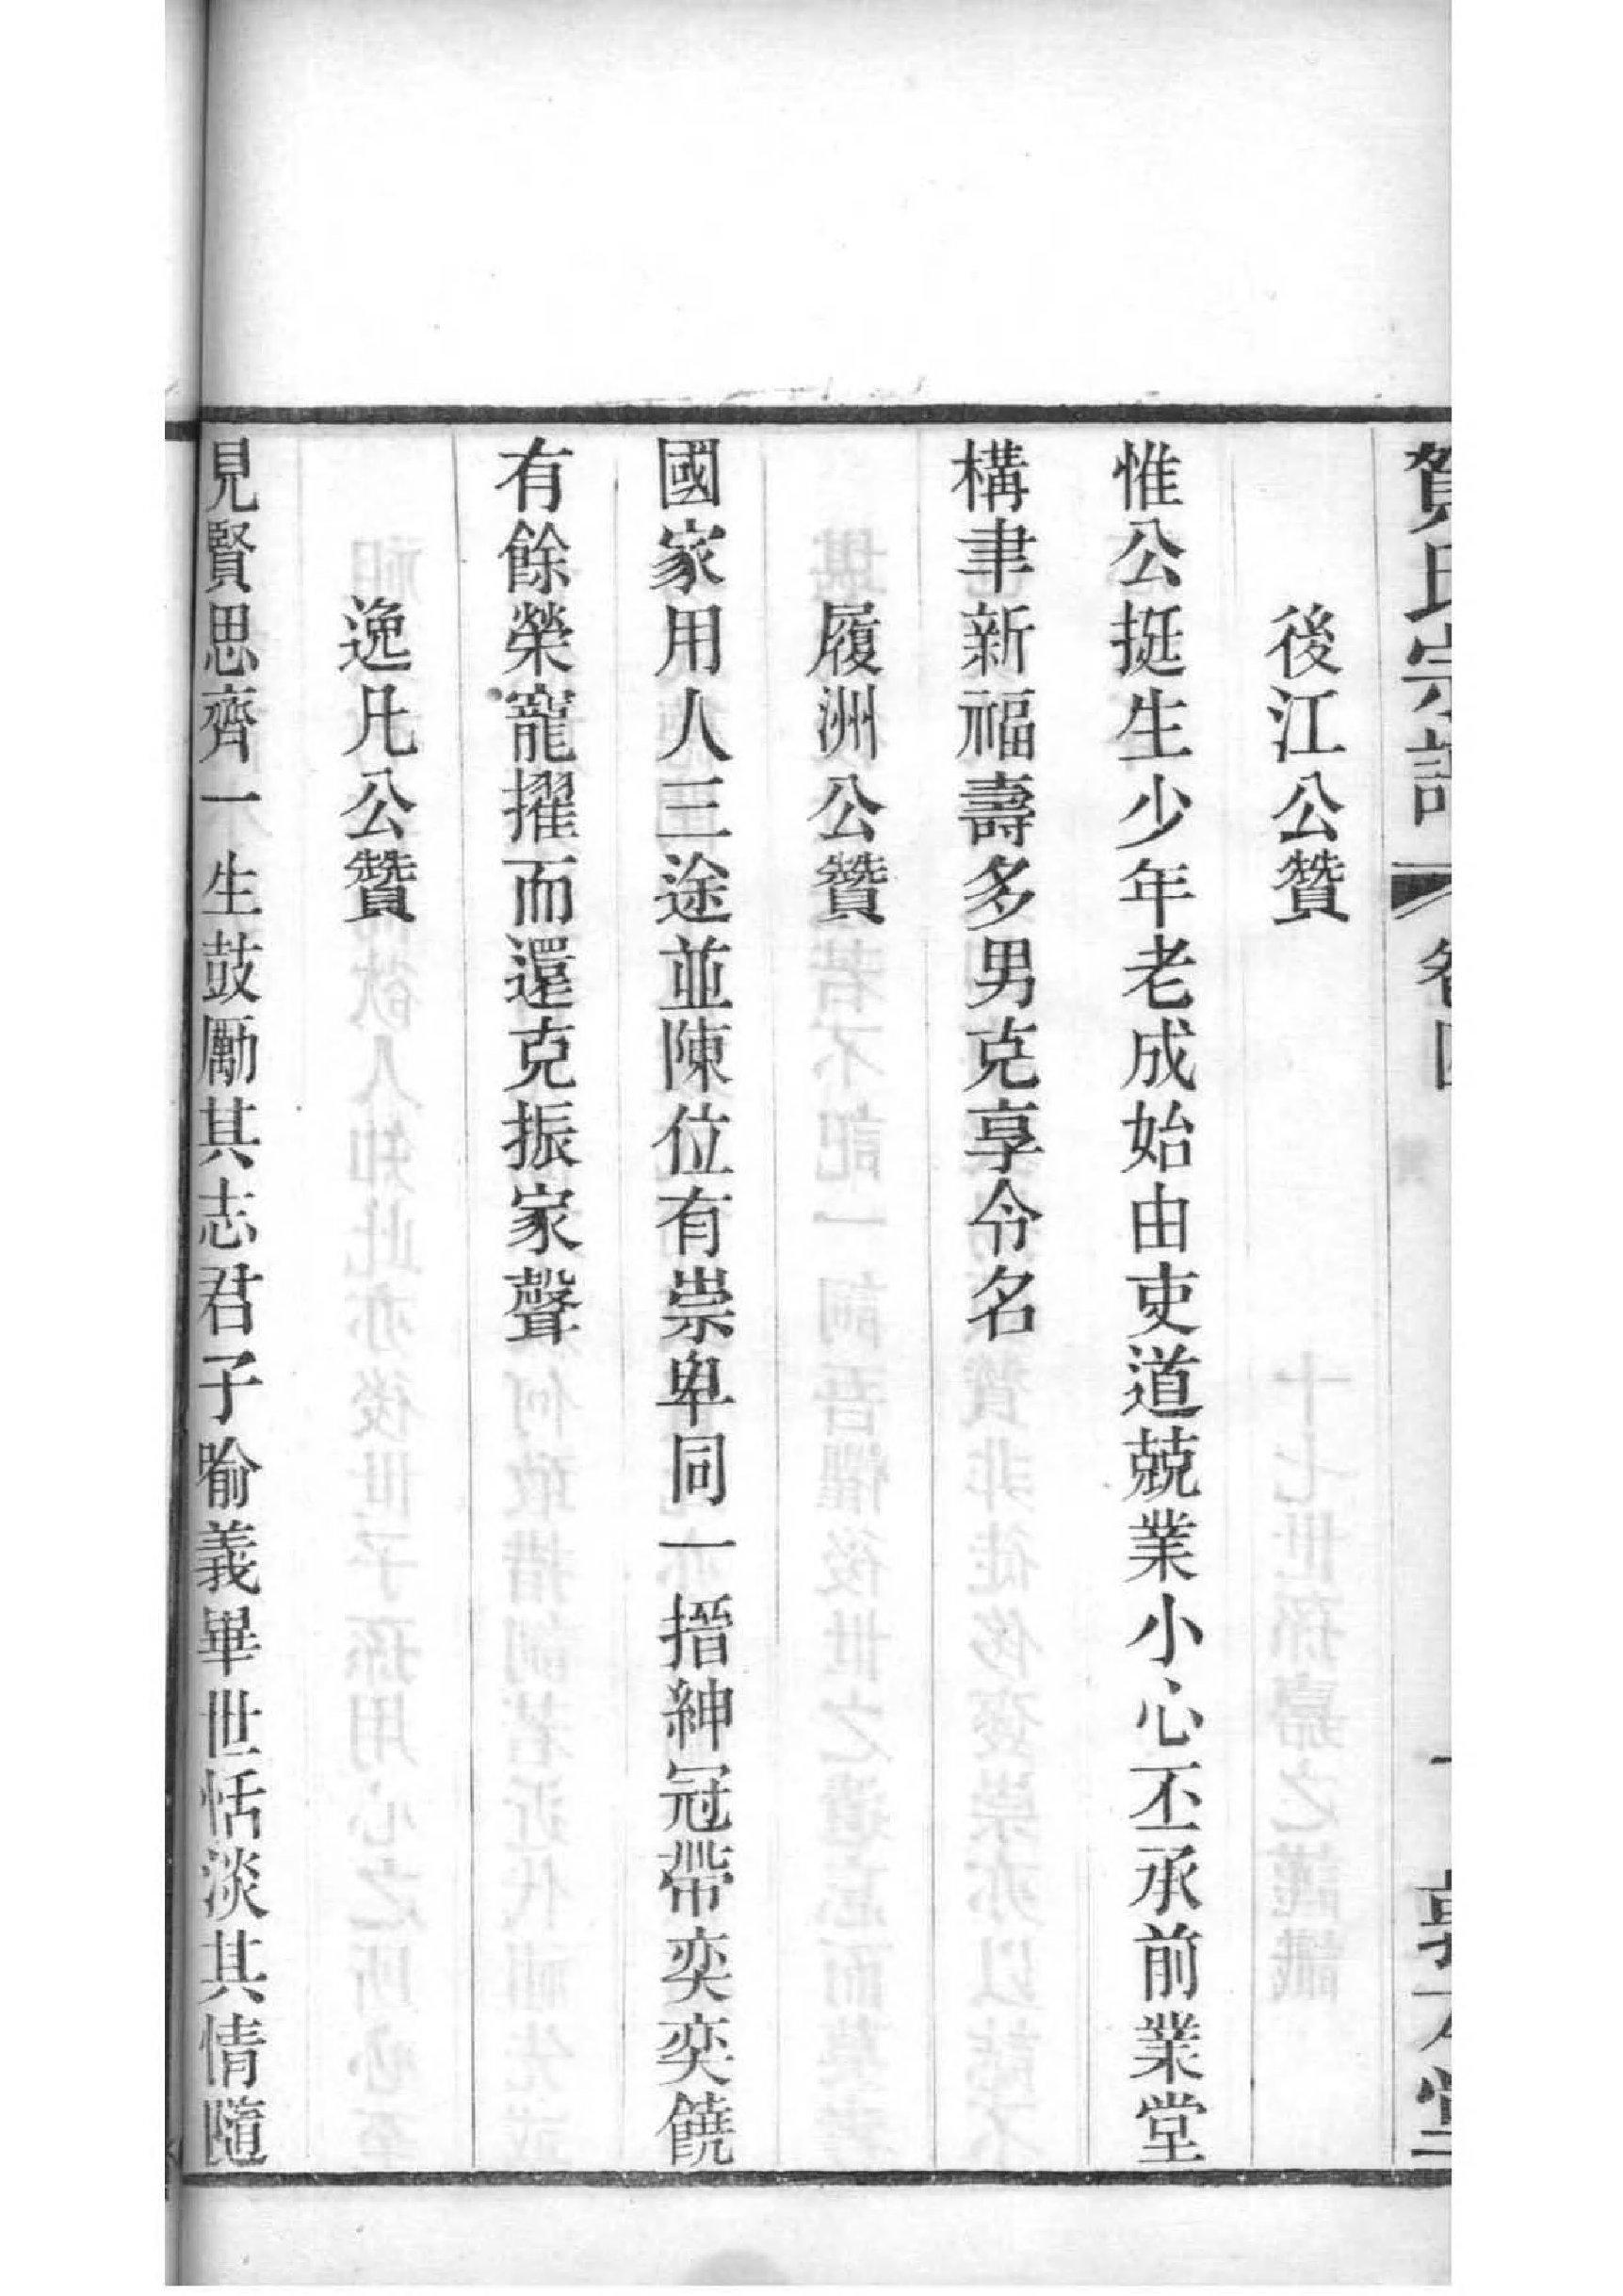 賀氏宗譜 卷四 敦本堂
後江公贊
惟公挺生少年老成始由吏道兢業小心丕承前業堂
構聿新福壽多男克享令名
履洲公贊
國家用人三途並陳位有崇卑同一搢紳冠帶奕奕饒
有餘榮寵擢而還克振家聲
逸凡公贊
見賢思齊一生鼓勵其志君子喻義畢世恬淡其情隨